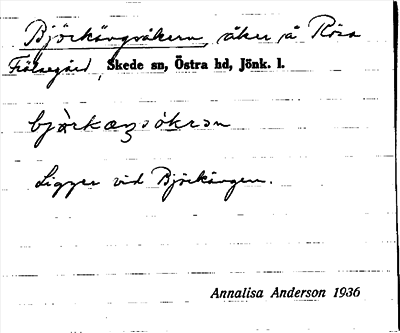 Björkängsåkern, åker å Rösa
Frälsegård, Skede sn, Östra hd, Jönk. l.
bjò̀rkæŋsåkrən
Ligger vid Björkängen.
Annalisa Anderson 1936